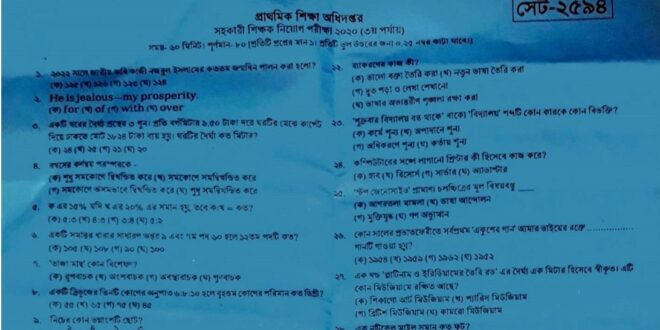 প্রাথমিক শিক্ষা অধিদপ্তর
সহকারী শিক্ষক নিয়োগ পরীক্ষা ২০২০ (৩য় পর্যায়)
সেট-২৫৯৪
সময়- ৬০ মিনিট। পূর্ণমান- ৮০ [প্রতিটি প্রশ্নের মান ১। প্রতিটি ভুল উত্তরের জন্য ০.২৫ নম্বর কাটা যাবে।]
১. ২০২২ সালে জাতীয় কবি কাজী নজরুল ইসলামের কততম জন্মদিন পালন করা হলো?
(ক) ১২৫ (খ) ১২৬ (গ) ১২৩ (ঘ) ১২৪
২. He is jealous---my prosperity.
(ক) for (খ) of (গ) with (ঘ) over
৩. একটি ঘরের দৈর্ঘ্য প্রস্থের ৩ গুন। প্রতি বর্গমিটার ৯.৫০ টাকা দরে ঘরটির মেঝে কার্পেট
দিয়ে ঢাকতে মোট ১৮২৪ টাকা ব্যয় হয়। ঘরটির দৈর্ঘ্য কত মিটার?
(ক) ২৪ (খ) ২৫ (গ) ২১ (ঘ) ২০
৪. রম্বসের কর্ণদ্বয় পরস্পরকে -
(ক) শুধু সমকোণে দ্বিখন্ডিত করে (খ) সমকোণে সমদ্বিখন্ডিত করে
(গ) সমকোণে অসমভাবে দ্বিখন্ডিত করে (ঘ) শুধু সমদ্বিখন্ডিত করে
৫. ক এর ১৫% যদি খ এর ২০% এর সমান হয়, তবে ক:খ = কত?
(ক) ৫:৩ (খ) ৪:৩ (গ) ৩:৪ (ঘ) ৫:২
৬. একটি সমান্তর ধারার সাধারণ অন্তর ৯ এবং ৭ম পদ ৬০ হলে ১২তম পদটি কত?
(ক) ১০৫ (খ) ১০৮ (গ) ৯০ (ঘ) ১০০
৭. 'তাজা মাছ' কোন বিশেষণ?
(ক) রূপবাচক (খ) অংশবাচক (গ) অবস্থাবাচক (ঘ) গুণবাচক
৮. একটি ত্রিভুজের তিনটি কোণের অনুপাত ৬:৮:১০ হলে বৃহত্তম কোণের পরিমান কত ডিগ্রী?
(ক) ৫৫ (খ) ৬৫ (গ) ৭৫ (ঘ) ৪৫
৯. নিচের কোন ভগ্নাংশটি ছোট?
২২. ব্যাকরণের কাজ কী?
(ক) ভালো বক্তা তৈরি করা (খ) নতুন ভাষা তৈরি করা
(গ) দ্রুত পড়া ও লেখা শেখানো
(ঘ) ভাষার অভ্যন্তরীণ শৃঙ্খলা রক্ষা করা
২৩. 'শুক্রবার বিদ্যালয় বন্ধ থাকে' বাক্যে 'বিদ্যালয়' শব্দটি কোন কারকে কোন বিভক্তি?
(ক) কর্মে শূন্য (খ) অপাদানে শূন্য
(গ) অধিকরণে শূন্য (ঘ) কর্তায় শূন্য
২৪. কম্পিউটারের সঙ্গে লাগানো প্রিন্টার কী হিসেবে কাজ করে?
(ক) হাব (খ) রিসোর্স (গ) সার্ভার (ঘ) অ্যাডাপ্টার
২৫. 'স্টপ জেনোসাইড' প্রামাণ্য চলচ্চিত্রের মূল বিষয়বস্তু
(ক) আগরতলা মামলা (খ) ভাষা আন্দোলন
(গ) মুক্তিযুদ্ধ (ঘ) গণ অভ্যুত্থান
২৬. কোন সালের প্রভাতফেরীতে সর্বপ্রথম 'একুশের গান' আমার ভাইয়ের রক্তে ............
গানটি গাওয়া হয়?
(ক) ১৯৫৪ (খ) ১৯৫৩ (গ) ১৯৬২ (ঘ) ১৯৫২
২৭. এক খন্ড 'প্লাটিনাম ও ইরিডিয়ামের তৈরি রড' এর দৈর্ঘ্য এক মিটার হিসেবে স্বীকৃত। এটি
কোন মিউজিয়ামে রক্ষিত আছে?
(ক) শিকাগো আর্ট মিউজিয়াম (খ) প্যারিস মিউজিয়াম
(গ) ব্রিটিশ মিউজিয়াম (ঘ) কায়রো মিউজিয়াম
২৮. এক নটিকেল মাইল সমান কত ফুট?